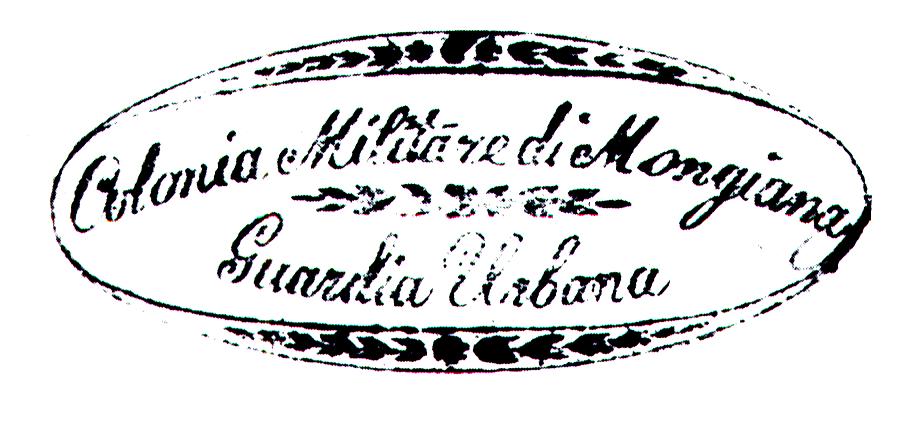 Colonia Militare di Mongiana
Guardia Urbana